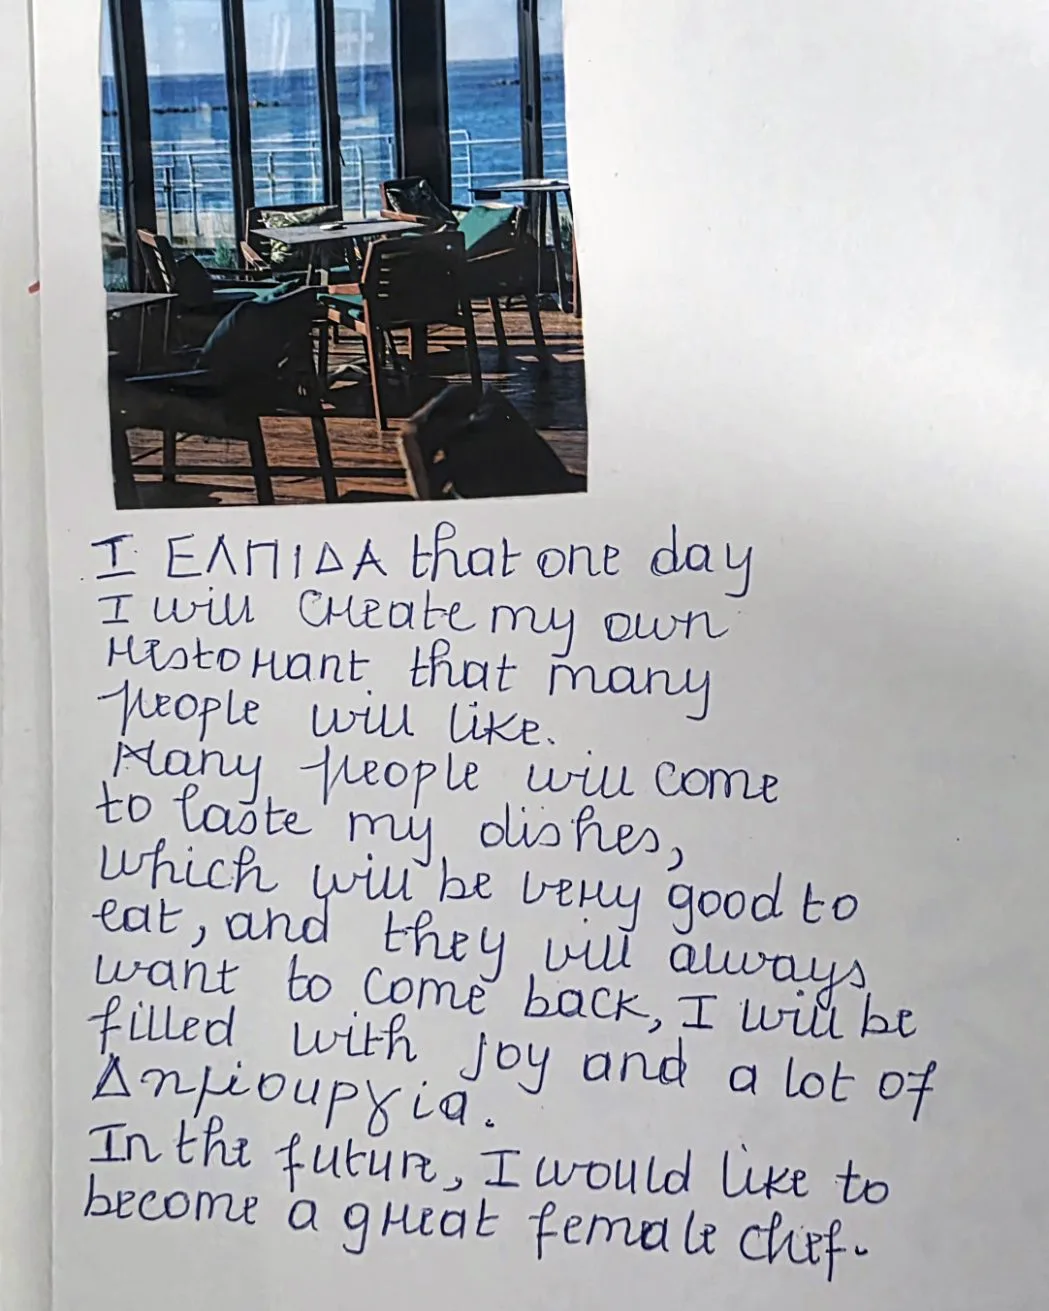 I ΕΛΠΙΔΑ that one day
I will create my own
restorant that many
people will like.
Many people will come
to taste my dishes,
which will be very good to
eat, and they will always
want to come back, I will be
filled with joy and a lot of
Δηµιουργία.
In the future, I would like to
become a great female chef.